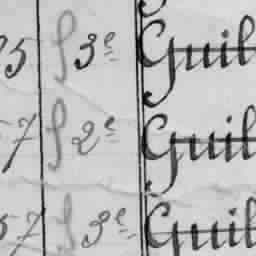 5 3e Guil
7 2e Guil
57 3e Guil